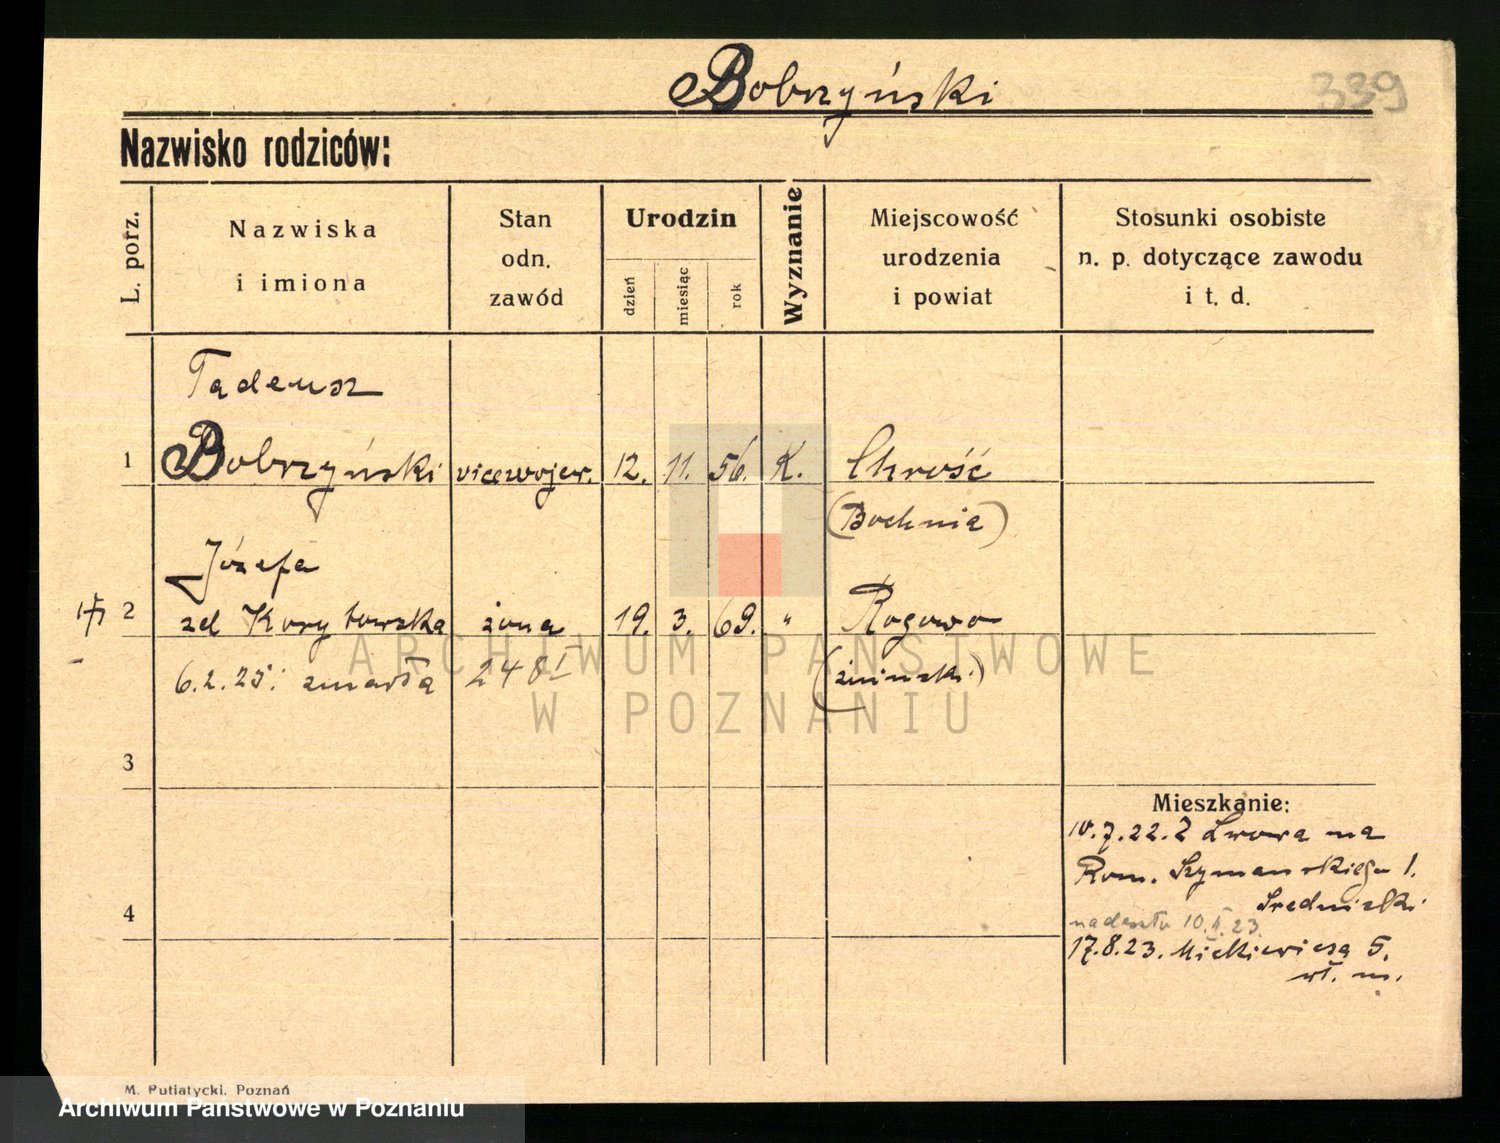 Bobrzyński
339
Nazwisko rodziców:
L. porz.
Nazwiska
i imiona
Stan
odn.
zawód
Urodzin
dzień
miesiąc
rok
Wyznanie
Miejscowość
urodzenia
i powiat
Stosunki osobiste
n. p. dotyczące zawodu
i t. d.
Tadeusz
1 Bobrzyński vicewojew. 12. 11. 56. K. Chrość
(Bochnia)
Józefa
2 zd Korytowska żona 19. 3. 69. " Rogowo
6.2.25. zmarła 248 I (żnińsk.)
ARCHIWUM PAŃSTWOWE
W POZNANIU
3
Mieszkanie:
10.7.22. Z Lwowa na
Rom. Szymańskiego 1.
4
17.8.23. Mickiewicza 5.
wł. m.
M. Putiatycki, Poznań
Archiwum Państwowe w Poznaniu